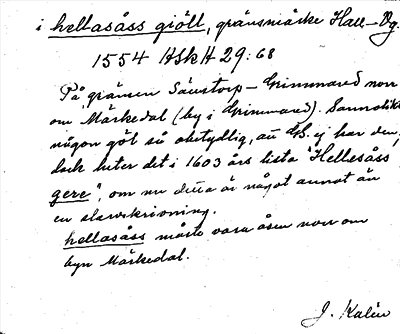 i hellasåss giöll, gränsmärke Hall – Vg.
1554 HSkH 29:68
På gränsen Säustorp – Grimmared norr
om Märkedal (by i Grimmared). Sannolikt
någon göl så obetydlig, att GS. ej har den,
dock heter det i 1603 års lista "Hellesåss
gere", om nu detta är något annat än
en felskrivning.
hellasåss måste vara åsen norr om
byn Märkedal.
J. Kalén